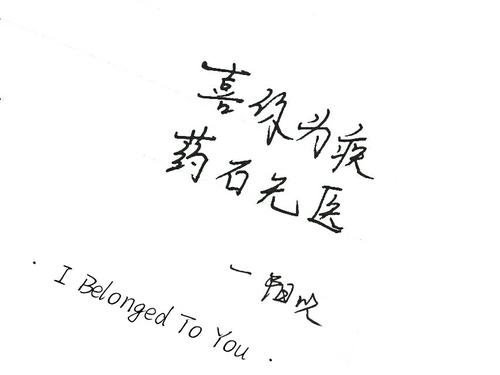 喜你为疾
药石无医
· I Belonged To You .